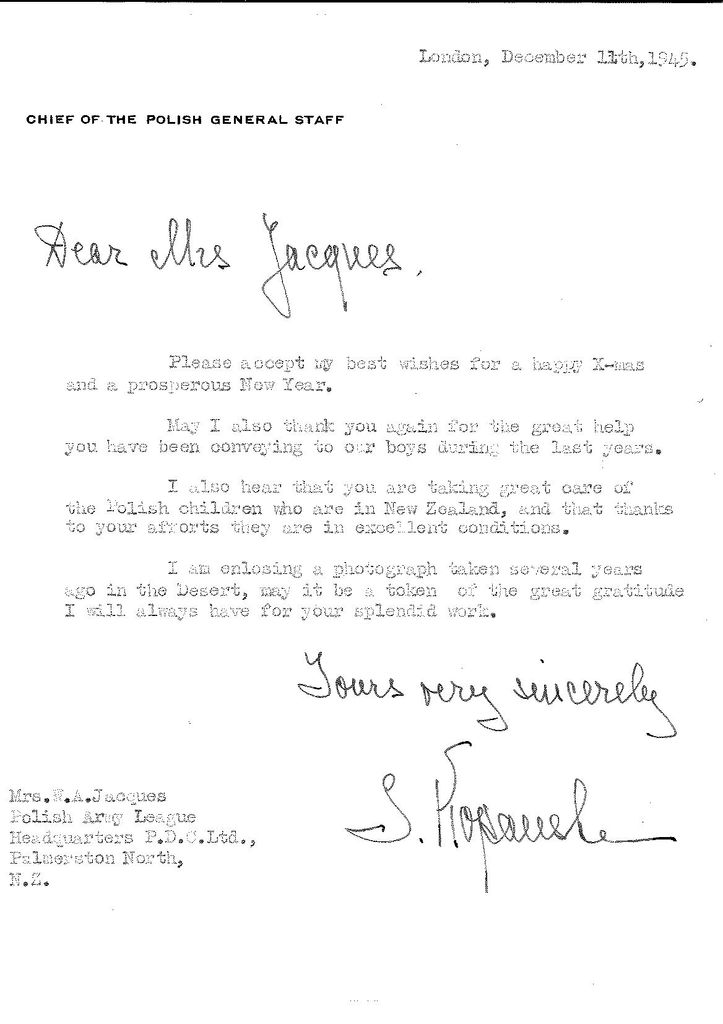 London, December 11th,1945.
CHIEF OF THE POLISH GENERAL STAFF
Dear Mrs Jacques,
Please accept my best wishes for a happy X-mas
and a prosperous New Year.
May I also thank you again for the great help
you have been conveying to our boys during the last years.
I also hear that you are taking great care of
the Polish children who are in New Zealand, and that thanks
to your afforts they are in excellent conditions.
I am enlosing a photograph taken several years
ago in the Desert, may it be a token of the great gratitude
I will always have for your splendid work.
Yours very sincerely
S. Kopanski
Mrs. A.Jacques
Polish Army League
Headquarters P.D.C.Ltd.,
Palmerston North,
N.Z.